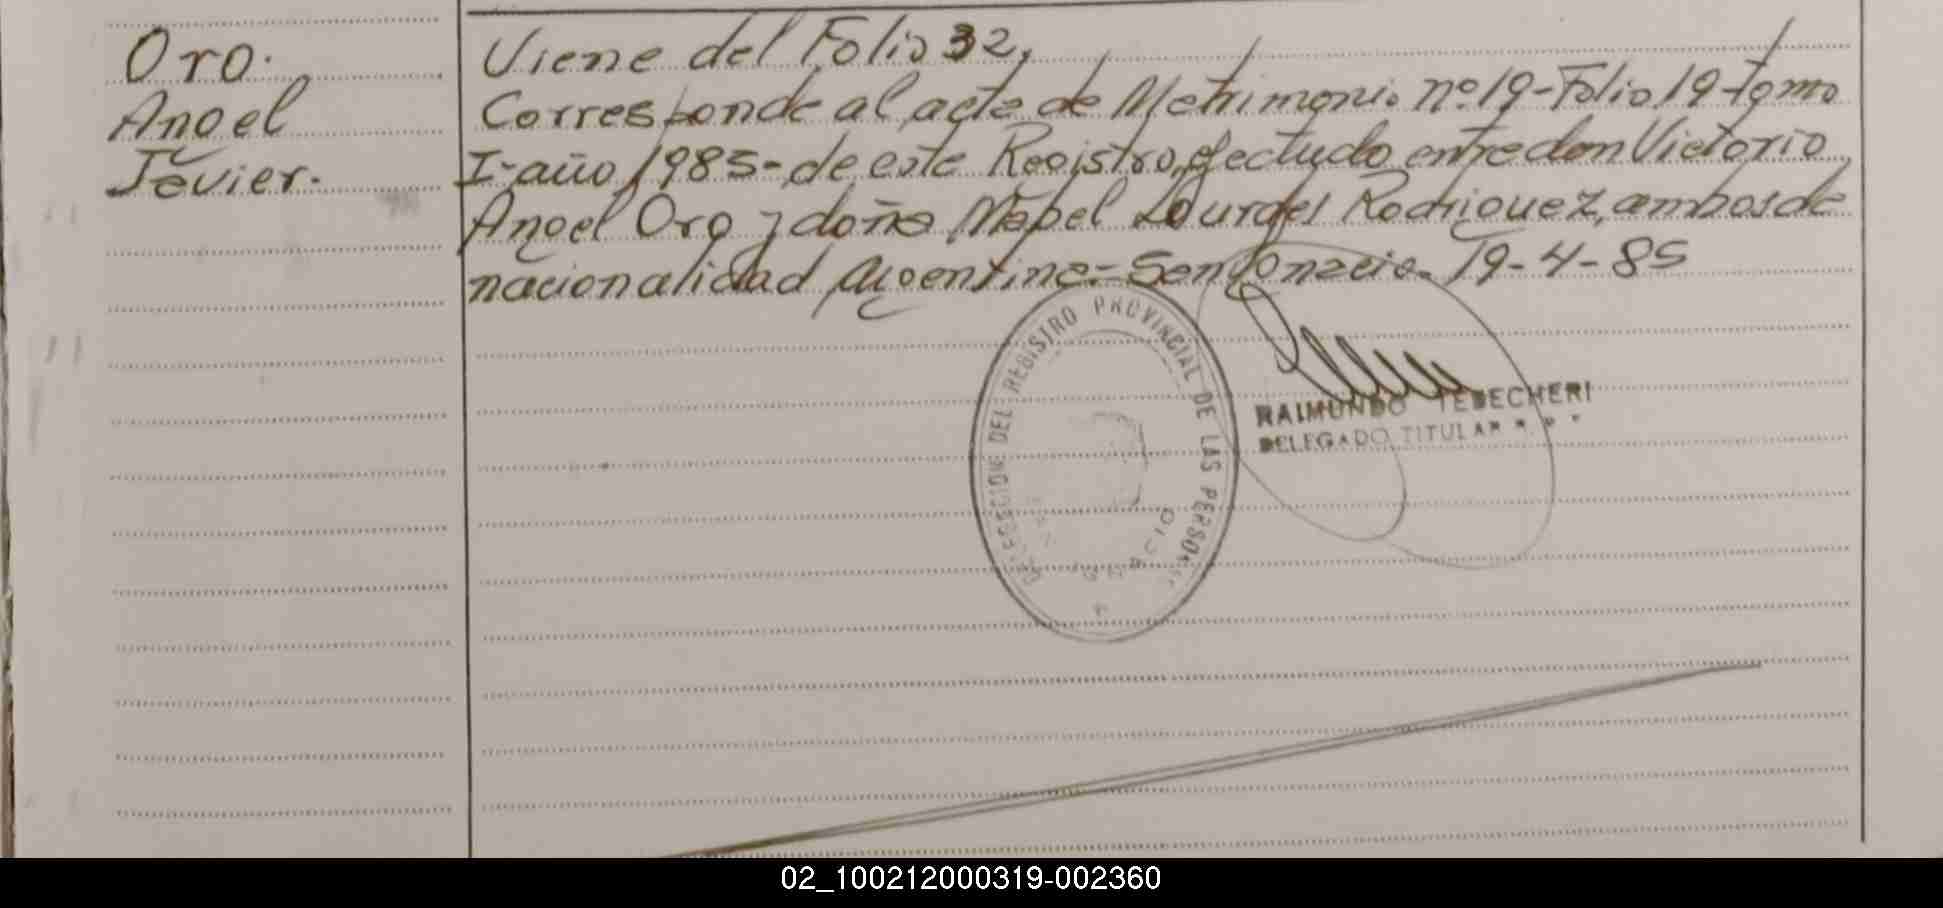 Oro.
Angel
Javier.
Viene del Folio 32,
Corresponde al acta de Matrimonio nº19-Folio 19-tomo
I-año 1985-de este Registro, efectudo entre don Victorio
Angel Oro y doña Mabel Lourdes Rodriguez, ambos de
nacionalidad Argentina.- San Ignacio. 19-4-85
DELEGACION DEL REGISTRO PROVINCIAL DE LAS PERSONAS
IGNACIO
RAIMUNDO TEBECHERI
DELEGADO TITULAR
02_100212000319-002360